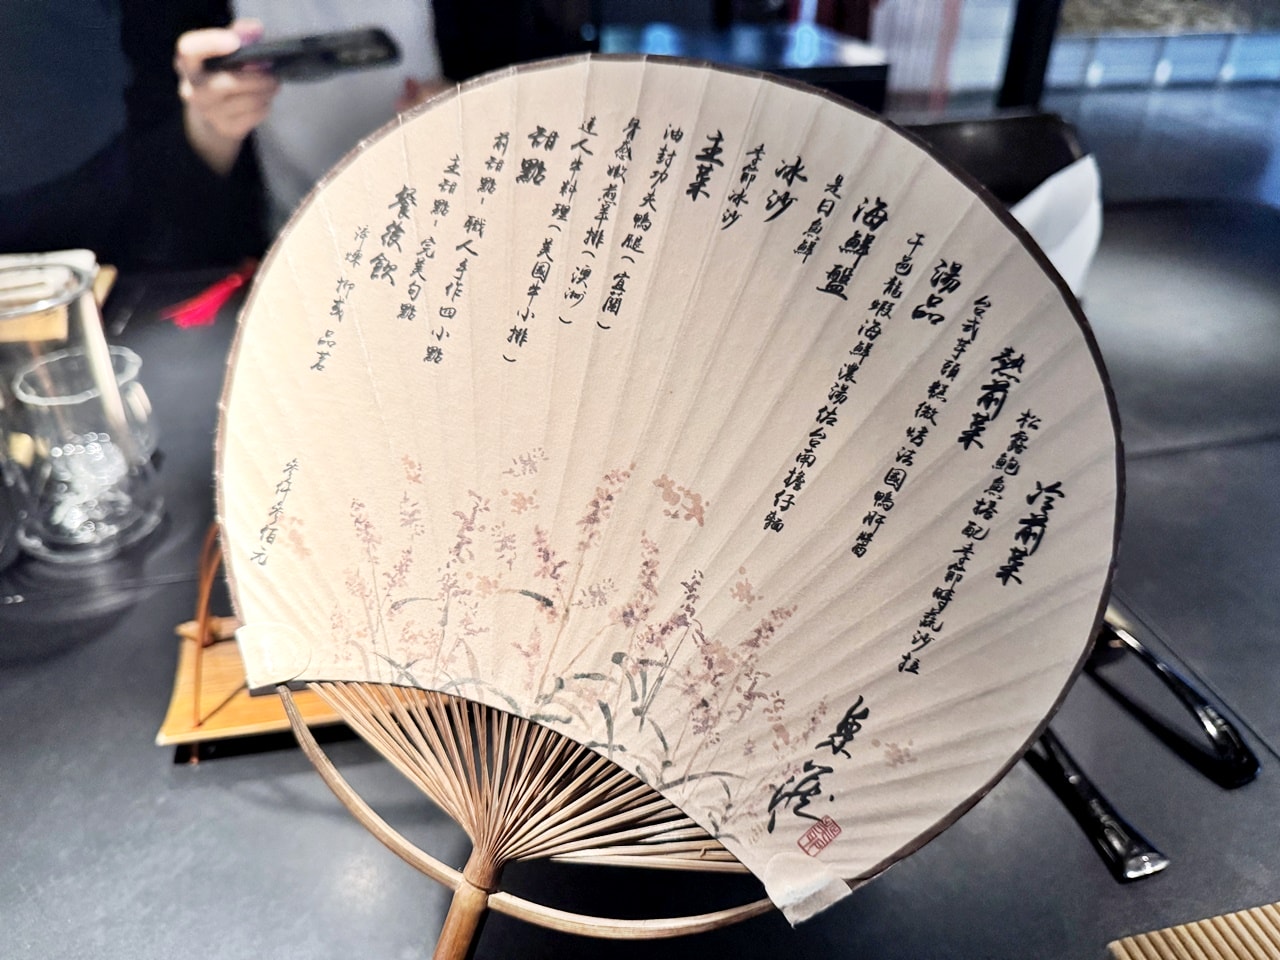 冷前菜
松露鮑魚搭配季節時蔬沙拉
熱前菜
台式芋頭糕微烤法國鴨肝醬
湯品
干邑龍蝦海鮮濃湯佐台南擔仔麵
海鮮盤
是日魚鮮
冰沙
季節冰沙
主菜
油封功夫鴨腿(宜蘭)
骨感嫩煎羊排(澳洲)
達人牛料理(美國牛小排)
甜點
前甜點-職人手作四小點
主甜點-完美句點
餐後飲
淬煉 抑或 品茗